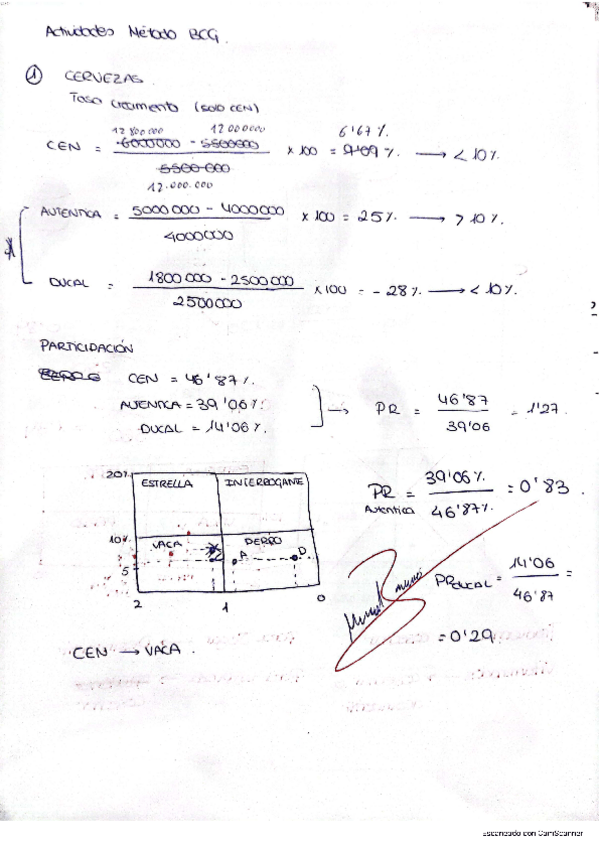 Actividades Método BCG.
① CERVEZAS.
Tasa crecimiento (solo CEN)
12 800 000 12 000 000 6'67%
CEN = 6000000 - 5500000 / 5500 000 x 100 = 9'09 % → < 10%.
12.000.000
AUTENTICA = 5000 000 - 4000000 / 4000000 x 100 = 25% → > 10%.
DUCAL = 1800 000 - 2500 000 / 2500000 x 100 = - 28% → < 10%.
PARTICIDACIÓN
CEN = 46'87%.
AUTENTICA = 39'06%.
DUCAL = 14'06%.
→ PR = 46'87 / 39'06 = 1'27.
20% ESTRELLA INTERROGANTE
10% VACA PERRO
A D
5
2 1 0
PR Autentica = 39'06% / 46'87% = 0'83.
PR DUCAL = 14'06 / 46'87 =
= 0'29.
CEN → VACA.
Escaneado con CamScanner